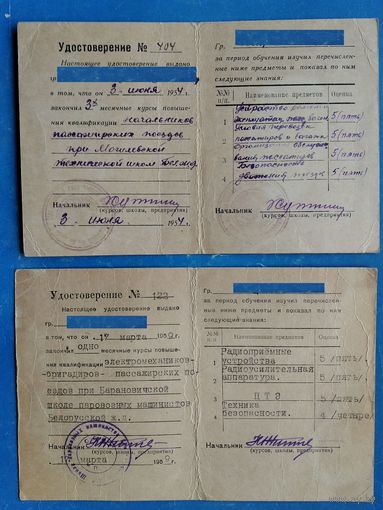 Удостоверение № 404
Настоящее удостоверение выдано
в том, что он 3 июня 1954 г.
закончил 3х месячные курсы повыше-
ния квалификации начальников
пассажирских поездов
при
технической школе
Начальник
(курсов, школы, предприятия)
3 июня 1954 г.
Гр.
за период обучения изучил перечислен-
ные ниже предметы и показал по ним
следующие знания:
№№ п/п. Наименование предметов Оценка
Устройство 5 (пять)
Условия перевозок
пассажиров и багажа 5 (пять)
пассажиров 5 (пять)
4 Безопасность
движения поездов 5 (пять)
Начальник
(курсов, школы, предприятия)
Удостоверение № 123
Настоящее удостоверение выдано
гр.
в том, что он 17 марта 1959 г.
закончил одно месячные курсы повыше-
ния квалификации электромехаников-
-бригадиров- пассажирских по-
ездов при Барановичской
школе паровозных машинистов
Белорусской ж.д.
Начальник
(курсов, школы, предприятия)
марта 195 г.
за период обучения изучил перечислен-
ные ниже предметы и показал по ним
следующие знания:
№№ п/п. Наименование предметов Оценка
1 Радиоприёмные
устройства 5 /пять/
2 Радиоусилительная
аппаратура. 5 /пять/
3 ПТЭ 5 /пять/
4 Техника
безопасности. 4 /четыре/
Начальник
(курсов, школы, предприятия)